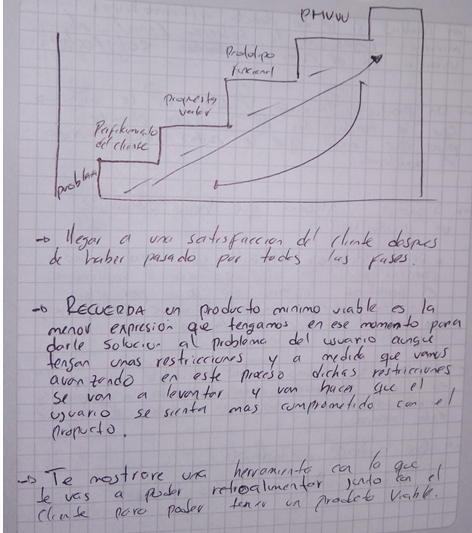 PMVV
Prototipo
funcional
Propuesta
valor
Perfilamiento
del cliente
problema
→ llegar a una satisfaccion del cliente despues
de haber pasado por todas las fases.
→ RECUERDA un producto minimo viable es la
menor expresion que tengamos en ese momento para
darle solucion al problema del usuario aunque
tengan unas restricciones y a medida que vamos
avanzando en este proceso dichas restricciones
se van a levantar y van hacer que el
usuario se sienta mas comprometido con el
producto.
→ Te mostrare una herramienta con la que
te vas a poder retroalimentar junto con el
cliente para poder tener un producto viable.